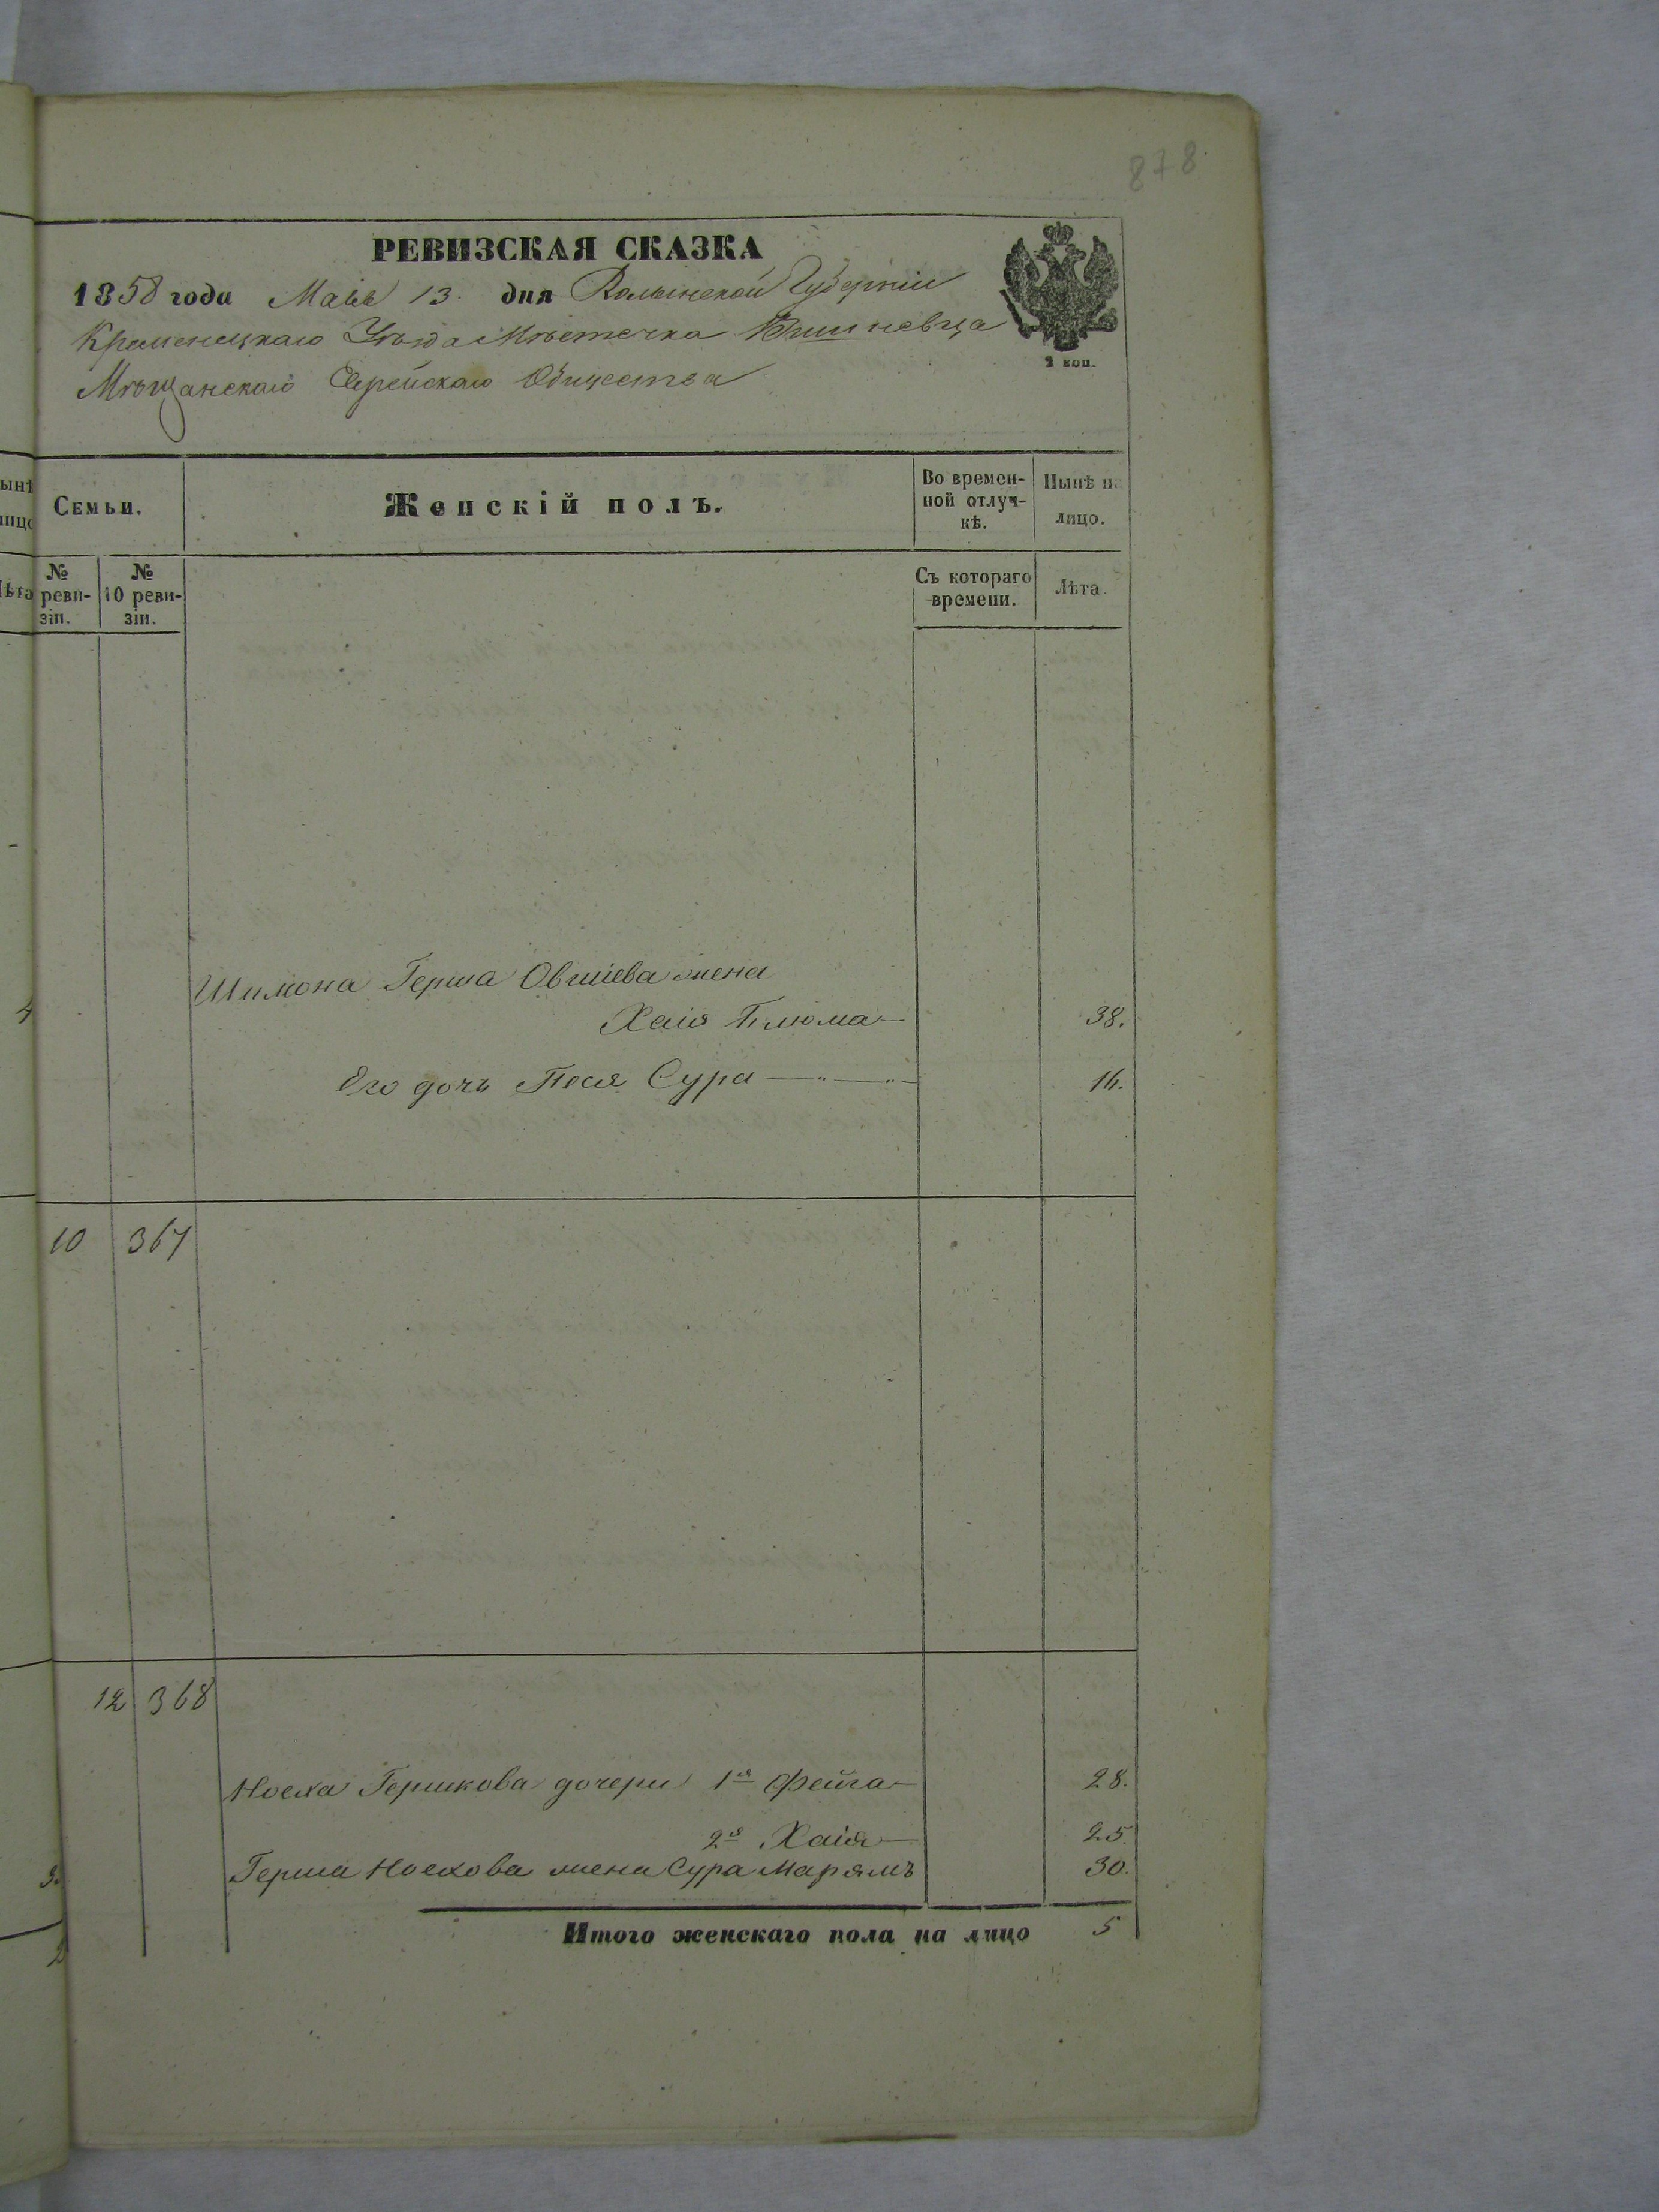 878
РЕВИЗСКАЯ СКАЗКА
1858 года Маія 13. дня Волынской Губерніи
Кременецкаго Уѣзда Мѣстечка Вишневца
2 коп.
Мѣщанскаго Еврейскаго Общества
Семьи.
Женскій полъ.
Во времен-
ной отлуч-
кѣ.
Нынѣ на
лицо.
№
реви-
зіи.
№
10 реви-
зіи.
Съ котораго
времени.
Лѣта.
Шимона Герша Овшіева жена
Хаія Блюма 38.
Его дочь Песя Сура 16.
10 367
12 368
Ноеха Гершкова дочери 1я Фейга 28.
2я Хаія 25.
Герша Ноехова жена Сура Марямъ 30.
Итого женскаго пола на лицо 5